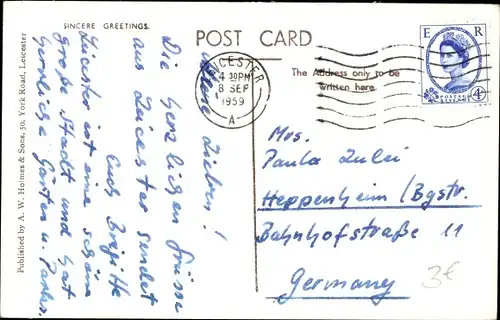 SINCERE GREETINGS.
POST CARD
The Address only to be
written here.
CESTER
4 30PM
8 SEP
1959
A
E R
POSTAGE
REVENUE
4D
Meine Lieben!
Die herzlichsten Grüsse
aus Leicester sendet
Euch Brigitte
Leicester ist eine schöne
große Stadt und hat
herrliche Gärten u. Parks.
Mrs.
Paula Zulei
Heppenheim/Bgstr.
Bahnhofstraße 11
Germany
3€
Published by A. W. Holmes & Sons, 50, York Road, Leicester